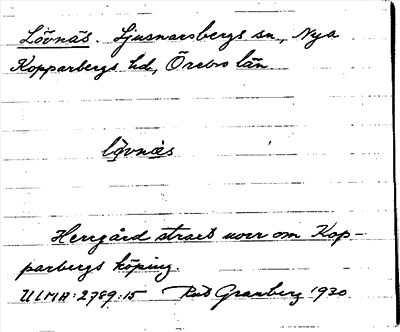 Lövnäs. Ljusnarsbergs sn., Nya
Kopparbergs hd., Örebro län
lövnäs
Herrgård strax norr om Kop-
parbergs köping.
ULMA: 2789:15 Rud Granberg 1930.